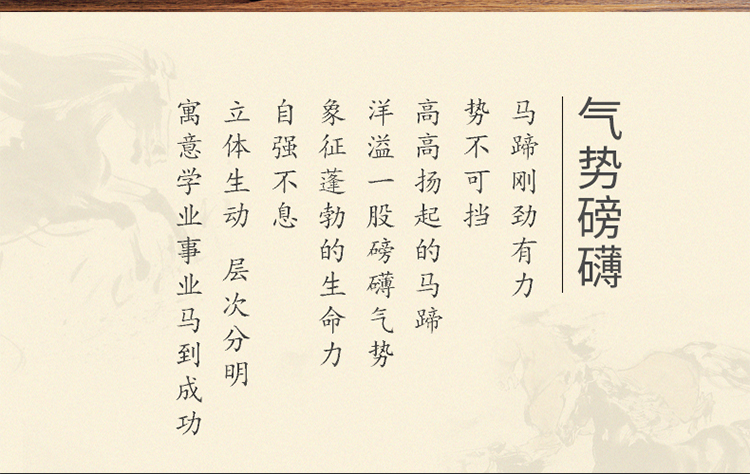 气势磅礴
马蹄刚劲有力
势不可挡
高高扬起的马蹄
洋溢一股磅礴气势
象征蓬勃的生命力
自强不息
立体生动 层次分明
寓意学业事业马到成功